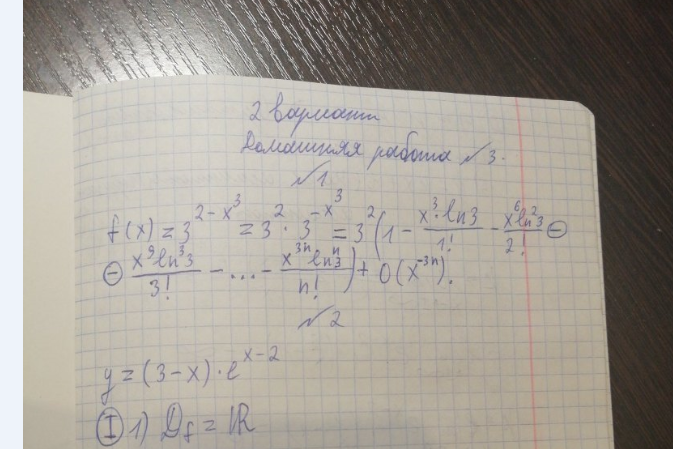 2 вариант
Домашняя работа №3.
№1
f(x) = 3^{2-x^3} = 3^2 · 3^{-x^3} = 3^2 (1 - \frac{x^3 · ln3}{1!} - \frac{x^6 ln^2 3}{2!} ⊖
⊖ \frac{x^9 ln^3 3}{3!} - ... - \frac{x^{3n} ln^n 3}{n!}) + O(x^{-3n}).
№2
y = (3-x) · e^{x-2}
Ⓘ 1) D_f = ℝ